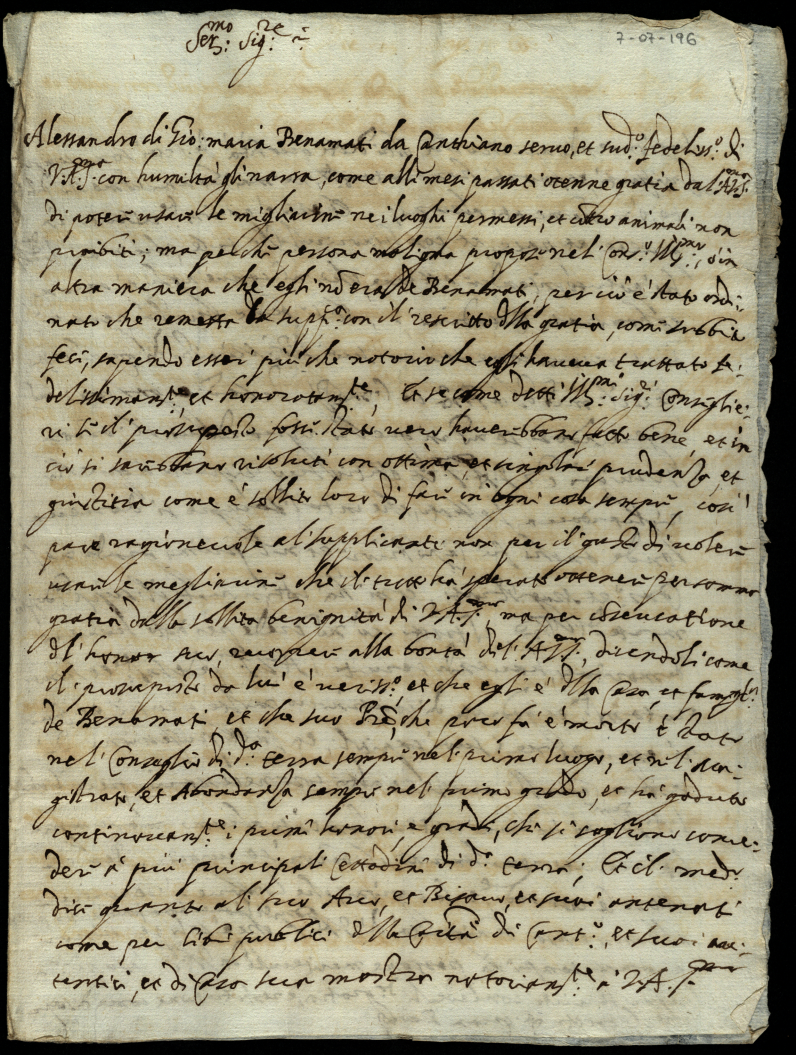 Ser.mo Sig.re
7-07-196
Alessandro di Gio: maria Benamati da Canthiano seruo, et sud.o fedeliss.o di
V.A.S. con humiltà gli narra, come alli mesi passati otenne gratia dal A.V.S.
di poter usare le migliarine nei luoghi permessi, et contro animali non
proibiti; ma perche persona maligna propose nel Cons.o Ill.mo, ò in
altra maniera che egli non era de Benamati, per ciò è stato ordi:
nato che remetta la supp.ca con il rescritto della gratia, come subbito
feci, sapendo esser più che notorio che egli haueua trattato fe:
delissimam.te et honoratam.te. Et se come detti Ill.mi Sig.ri Consiglie:
ri se il presuposto fosse stato uero hauerebbano fatto bene, et in
ciò si sarebbano risoluti con ottima, et singolar prudenza, et
giustitia come è sollito loro di fare in ogni cosa sempre, così
pare ragioneuole al supplicante non per il gusto di uoler
usare le megliarine che il tutto ha sperato ottenere per somma
gratia dalla sollita benignità di V.A.S., ma per conseruatione
del honor suo, ricorrere alla bontà dell'A.V.S., dicendoli come
il presuposto da lui è ueriss.o, et che egli è della Casa, et famiglia
de Benamati et che suo Pre, che poco fà è morto è stato
nel Conseglio di d.a terra sempre nel primo luogo, et nel ma:
gistrato, et Abondanza sempre nel primo grado, et ha goduto
continouam.te i primi honori, e gradi, che si sogliono conce:
dere à più principali Cettadini di d.a terra; Et il med.o
dice quanto al suo Auo, et Bisauo, et suoi antenati
come per libri publici della Città di Cant.o, et suoi au:
tentici, et di Casa sua mostra notoriam.te à V.A.S.